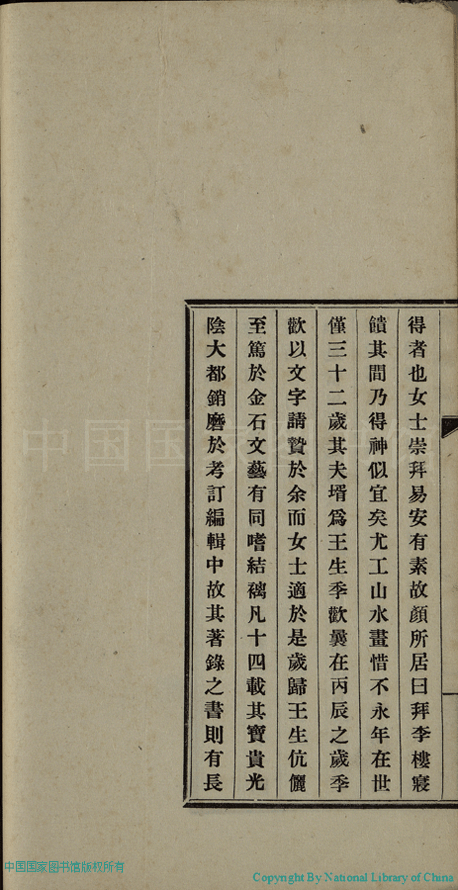 得者也女士崇拜易安有素故顏所居曰拜李樓寢
饋其間乃得神似宜矣尤工山水畫惜不永年在世
僅三十二歲其夫壻爲王生季歡曩在丙辰之歲季
歡以文字請贄於余而女士適於是歲歸王生伉儷
至篤於金石文藝有同嗜結褵凡十四載其寶貴光
陰大都銷磨於考訂編輯中故其著錄之書則有長
中国国家图书馆版权所有
Copyright By National Library of China